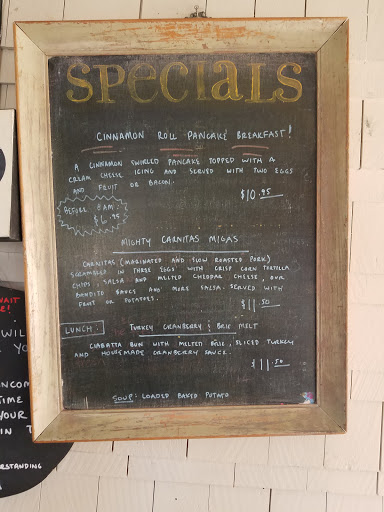 SPECIALS
CINNAMON ROLL PANCAKE BREAKFAST!
A CINNAMON SWIRLED PANCAKE TOPPED WITH A
CREAM CHEESE ICING AND SERVED WITH TWO EGGS
AND FRUIT OR BACON.
$10.95
BEFORE 8AM:
$6.95
MIGHTY CARNITAS MIGAS
CARNITAS (MARINATED AND SLOW ROASTED PORK)
SCRAMBLED IN THREE EGGS WITH CRISP CORN TORTILLA
CHIPS, SALSA AND MELTED CHEDDAR CHEESE, OUR
BANDITO SAUCE AND MORE SALSA. SERVED WITH
FRUIT OR POTATOES.
$11.50
LUNCH: TURKEY CRANBERRY & BRIE MELT
CIABATTA BUN WITH MELTED BRIE, SLICED TURKEY
AND HOUSEMADE CRANBERRY SAUCE.
$11.50
SOUP: LOADED BAKED POTATO
WAIT
E!
WIL
YO
INCOM
TIME
YOUR
IN T
ERSTANDING